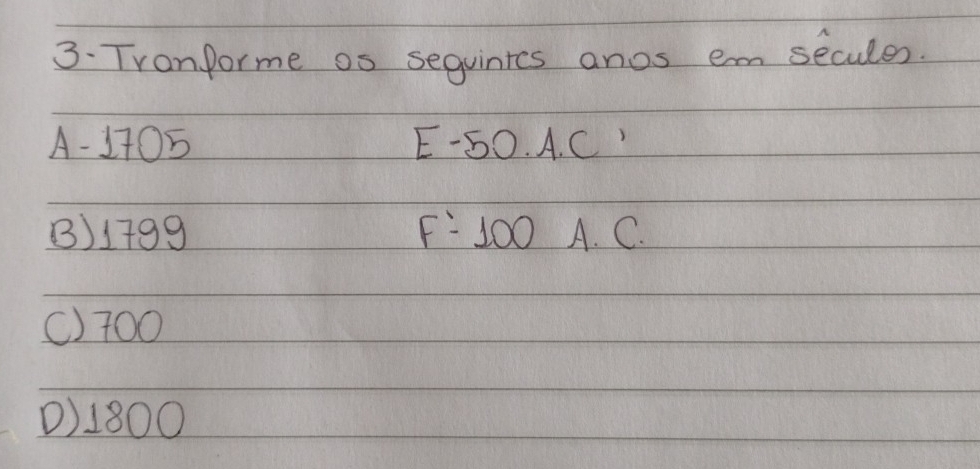 3-Tranforme os seguintes anos em sêculos.
A-1705 E-50.A.C'
B)1799 F- 100 A.C.
C)700
D)1800